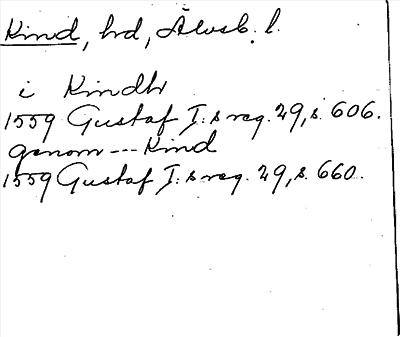 Kind, hd, Älvsb. l.
i Kindhr
1559 Gustaf I:s reg. 29, s. 606.
genom --- Kind
1559 Gustaf I:s reg. 29, s. 660.